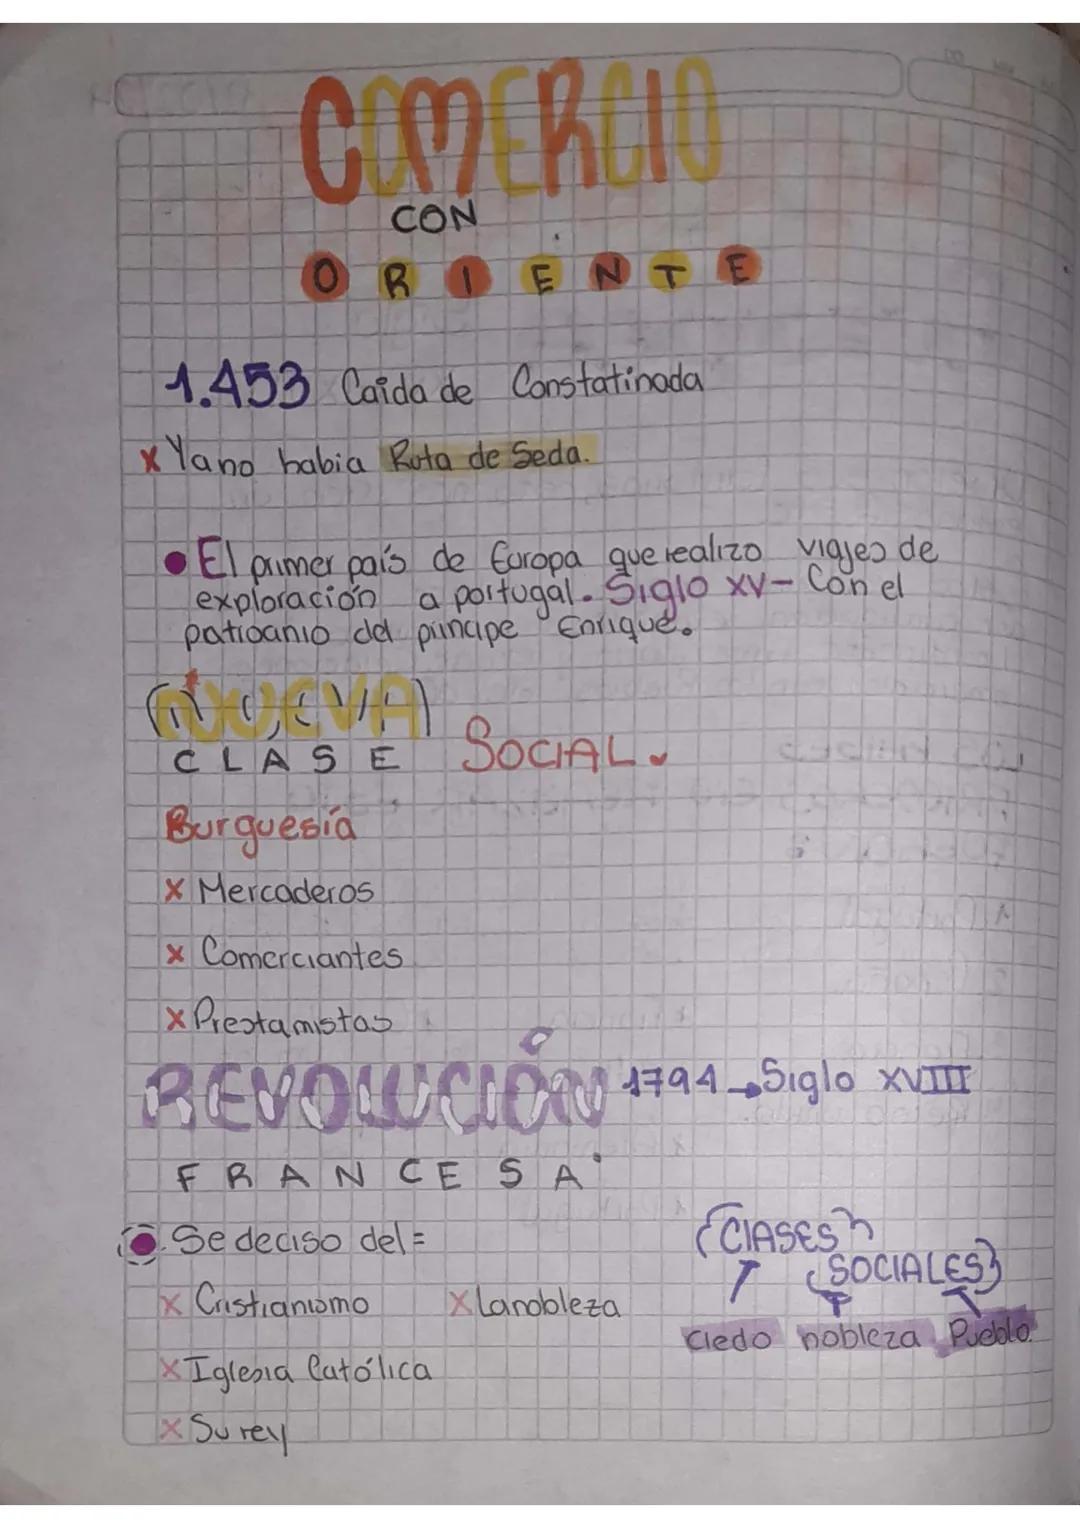 COMERCIO
CON
ORIENTE
1.453 Caida de Constatinada
x Ya no habia Ruta de Seda.
• El primer país de Europa que realizo viajes de
exploración a portugal. Siglo XV- Con el
patrocanio del principe Enrique.
(NUEVA)
CLASE SOCIAL.
Burguesía
x Mercaderos
x Comerciantes
x Prestamistas
REVOLUCIÓN 1794→Siglo XVIII
FRANCESA
• Se deciso del =
x Cristianismo x La nobleza
x Iglesia Católica
x Su rey
{CLASES}
{SOCIALES}
Cledo nobleza Pueblo.